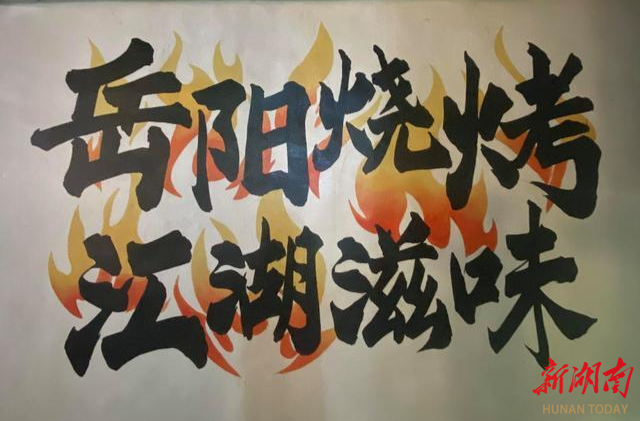 岳阳烧烤
江湖滋味
新湖南
HUNAN TODAY